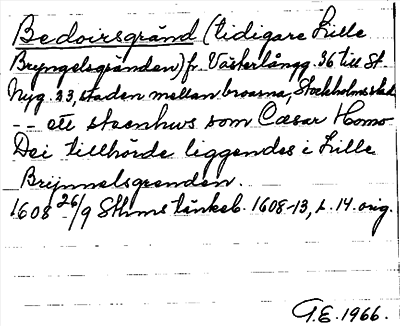 Bedoirsgränd (tidigare Lille
Bryngelsgränden) fr. Västerlångg. 36 till St.
Nyg. 23, staden mellan broarna, Stockholms stad
-- ett steenhws som Cæsar Homo
Dei tillhörde liggendes i Lille
Brijnnelsgrenden.
1608 26/9 Sthms tänkeb. 1608-13, s. 14. orig.
G.E. 1966.